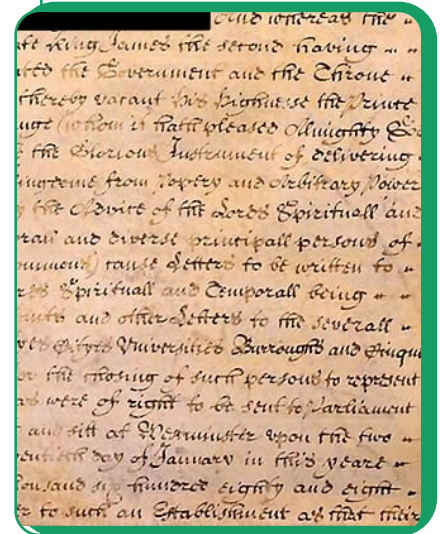 And whereas the
te King James the second having
ted the Government and the Throne
thereby vacant His Highnesse the Prince
nge (whom it hath pleased Almighty Go
e the Glorious Instrument of delivering
ingdome from Popery and Arbitrary Power
y the Advice of the Lords Spirituall and
orall and diverse principall persons of
ommons) cause Letters to be written to
rds Spirituall and Temporall being
tants and other Letters to the severall
yes Cityes Universities Burroughs and Cinque
or the chosing of such persons to represent
as were of right to be sent to Parliament
t and sitt at Westminster upon the two
entieth day of January in this yeare
housand six hundred eighty and eight
er to such an Establishment as that their